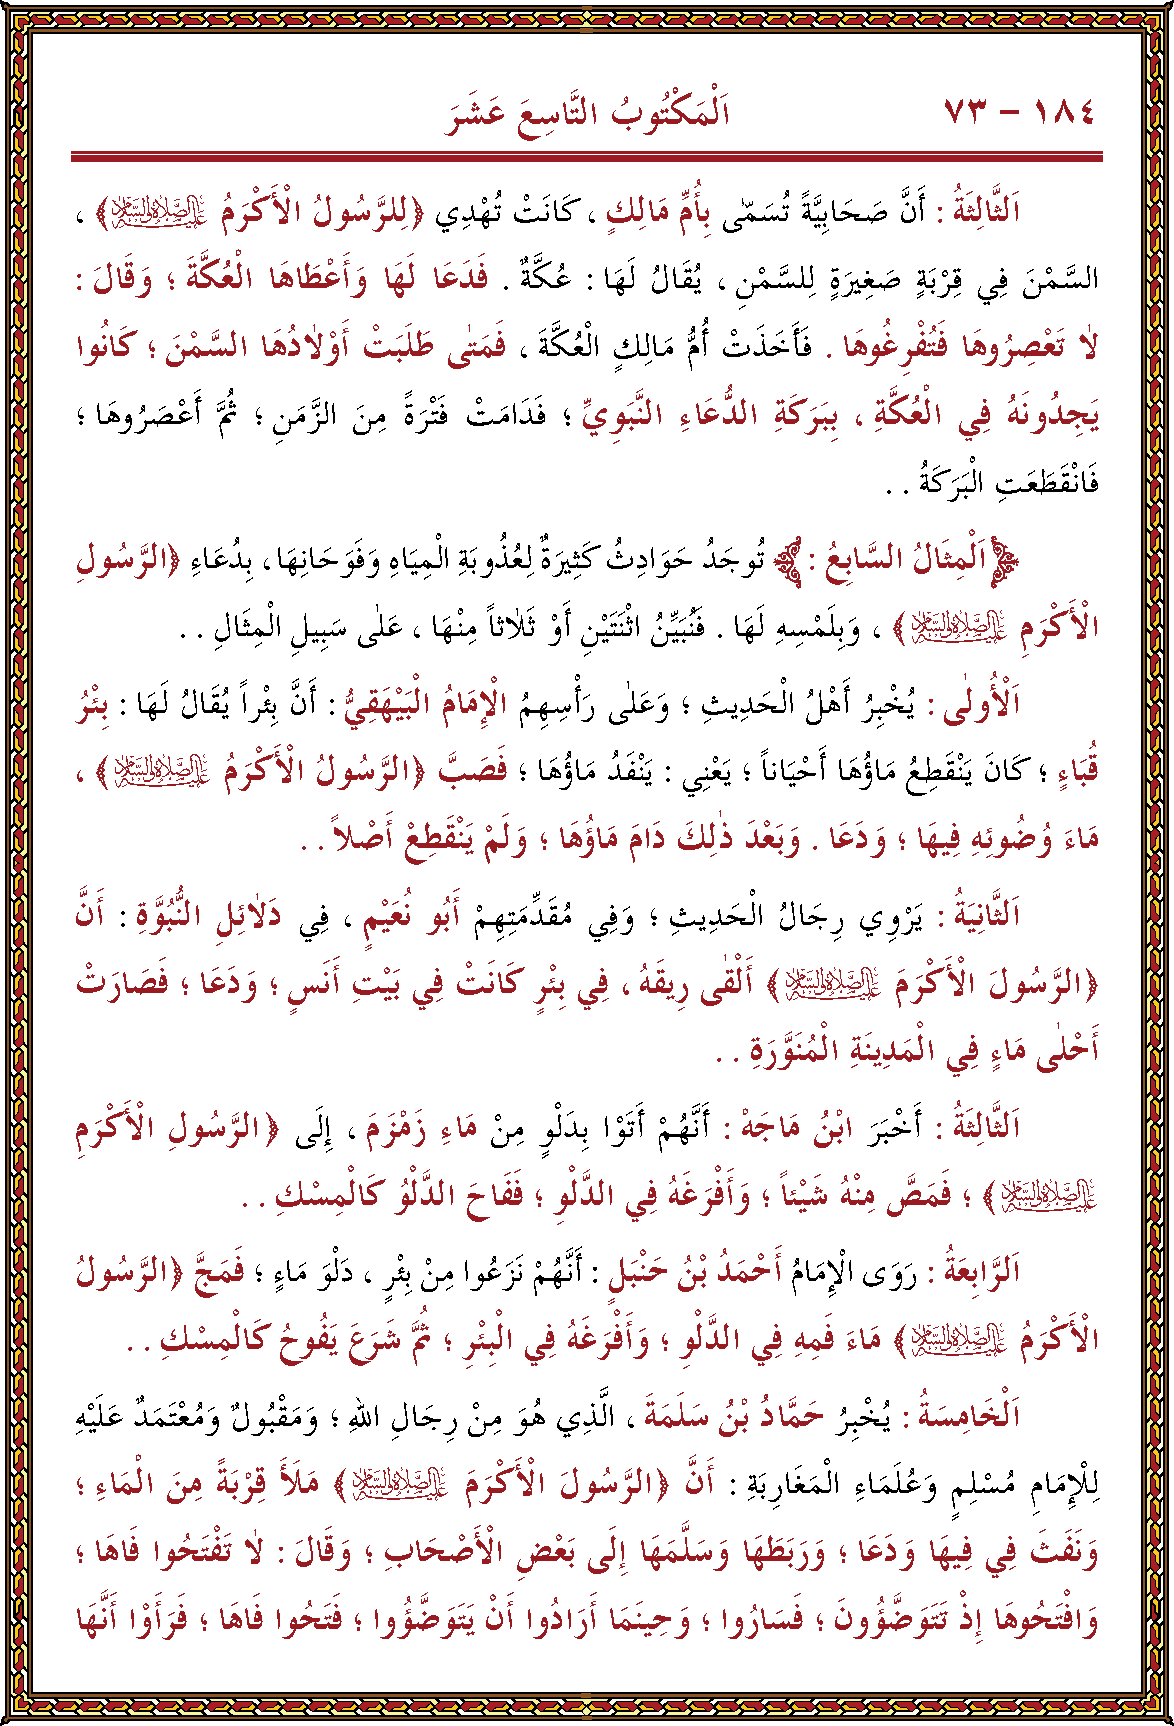 ١٨٤ – ٧٣ اَلْمَكْتُوبُ التَّاسِعَ عَشَرَ
اَلثَّالِثَةُ : أَنَّ صَحَابِيَّةً تُسَمّٰى بِأُمِّ مَالِكٍ ، كَانَتْ تُهْدِي ﴿لِلرَّسُولُ الْأَكْرَمُ عَلَيْهِ الصَّلَاةُ وَالسَّلَامُ﴾ ،
السَّمْنَ فِي قِرْبَةٍ صَغِيَرةٍ لِلسَّمْنِ ، يُقَالُ لَهَا : عُكَّةٌ . فَدَعَا لَهَا وَأَعْطَاهَا الْعُكَّةَ ؛ وَقَالَ :
لاٰ تَعْصِرُوهَا فَتُفْرِغُوهَا . فَأَخَذَتْ أُمُّ مَالِكٍ الْعُكَّةَ ، فَمَتٰى طَلَبَتْ أَوْلاٰدُهَا السَّمْنَ ؛ كَانُوا
يَجِدُونَهُ فِي الْعُكَّةِ ، بِبَرَكَةِ الدُّعَاءِ النَّبَوِيِّ ؛ فَدَامَتْ فَتْرَةً مِنَ الزَّمَنِ ؛ ثُمَّ أَعْصَرُوهَا ؛
فَانْقَطَعَتِ الْبَرَكَةُ . .
﴿اَلْمِثَالُ السَّابِعُ :﴾ تُوجَدُ حَوَادِثُ كَثِيَرةٌ لِعُذُوبَةِ الْمِيَاهِ وَفَوَحَانِهَا ، بِدُعَاءِ ﴿الرَّسُولِ
الْأَكْرَمِ عَلَيْهِ الصَّلَاةُ وَالسَّلَامُ﴾ ، وَبِلَمْسِهِ لَهَا . فَنُبَيِّنُ اثْنَتَيْنِ أَوْ ثَلاٰثاً مِنْهَا ، عَلٰى سَبِيلِ الْمِثَالِ . .
اَلْأُولٰى : يُخْبِرُ أَهْلُ الْحَدِيثِ ؛ وَعَلٰى رَأْسِهِمُ الْإِمَامُ الْبَيْهَقِيُّ : أَنَّ بِئْراً يُقَالُ لَهَا : بِئْرُ
قُبَاءٍ ؛ كَانَ يَنْقَطِعُ مَاؤُهَا أَحْيَاناً ؛ يَعْنِي : يَنْفَدُ مَاؤُهَا ؛ فَصَبَّ ﴿الرَّسُولُ الْأَكْرَمُ عَلَيْهِ الصَّلَاةُ وَالسَّلَامُ﴾ ،
مَاءَ وُضُوئِهِ فِيهَا ؛ وَدَعَا . وَبَعْدَ ذٰلِكَ دَامَ مَاؤُهَا ؛ وَلَمْ يَنْقَطِعْ أَصْلاً . .
اَلثَّانِيَةُ : يَرْوِي رِجَالُ الْحَدِيثِ ؛ وَفِي مُقَدِّمَتِهِمْ أَبُو نُعَيْمٍ ، فِي دَلاٰئِلِ النُّبُوَّةِ : أَنَّ
﴿الرَّسُولَ الْأَكْرَمَ عَلَيْهِ الصَّلَاةُ وَالسَّلَامُ﴾ أَلْقٰى رِيقَهُ ، فِي بِئْرٍ كَانَتْ فِي بَيْتِ أَنَسٍ ؛ وَدَعَا ؛ فَصَارَتْ
أَحْلٰى مَاءٍ فِي الْمَدِينَةِ الْمُنَوَّرَةِ . .
اَلثَّالِثَةُ : أَخْبَرَ ابْنُ مَاجَهْ : أَنَّهُمْ أَتَوْا بِدَلْوٍ مِنْ مَاءِ زَمْزَمَ ، إِلَى ﴿الرَّسُولِ الْأَكْرَمِ
عَلَيْهِ الصَّلَاةُ وَالسَّلَامُ﴾ ؛ فَمَصَّ مِنْهُ شَيْئاً ؛ وَأَفْرَغَهُ فِي الدَّلْوِ ؛ فَفَاحَ الدَّلْوُ كَالْمِسْكِ . .
اَلرَّابِعَةُ : رَوَى الْإِمَامُ أَحْمَدُ بْنُ حَنْبَلٍ : أَنَّهُمْ نَزَعُوا مِنْ بِئْرٍ ، دَلْوَ مَاءٍ ؛ فَمَجَّ ﴿الرَّسُولُ
الْأَكْرَمُ عَلَيْهِ الصَّلَاةُ وَالسَّلَامُ﴾ مَاءَ فَمِهِ فِي الدَّلْوِ ؛ وَأَفْرَغَهُ فِي الْبِئْرِ ؛ ثُمَّ شَرَعَ يَفُوحُ كَالْمِسْكِ . .
اَلْخَامِسَةُ : يُخْبِرُ حَمَّادُ بْنُ سَلَمَةَ ، الَّذِي هُوَ مِنْ رِجَالِ اللهِ ؛ وَمَقْبُولٌ وَمُعْتَمَدٌ عَلَيْهِ
لِلْإِمَامِ مُسْلِمٍ وَعُلَمَاءِ الْمَغَارِبَةِ : أَنَّ ﴿الرَّسُولَ الْأَكْرَمَ عَلَيْهِ الصَّلَاةُ وَالسَّلَامُ﴾ مَلَأَ قِرْبَةً مِنَ الْمَاءِ ؛
وَنَفَثَ فِي فِيهَا وَدَعَا ؛ وَرَبَطَهَا وَسَلَّمَهَا إِلَى بَعْضِ الْأَصْحَابِ ؛ وَقَالَ : لاٰ تَفْتَحُوا فَاهَا ؛
وَافْتَحُوهَا إِذْ تَتَوَضَّؤُونَ ؛ فَسَارُوا ؛ وَحِينَمَا أَرَادُوا أَنْ يَتَوَضَّؤُوا ؛ فَتَحُوا فَاهَا ؛ فَرَأَوْا أَنَّهَا